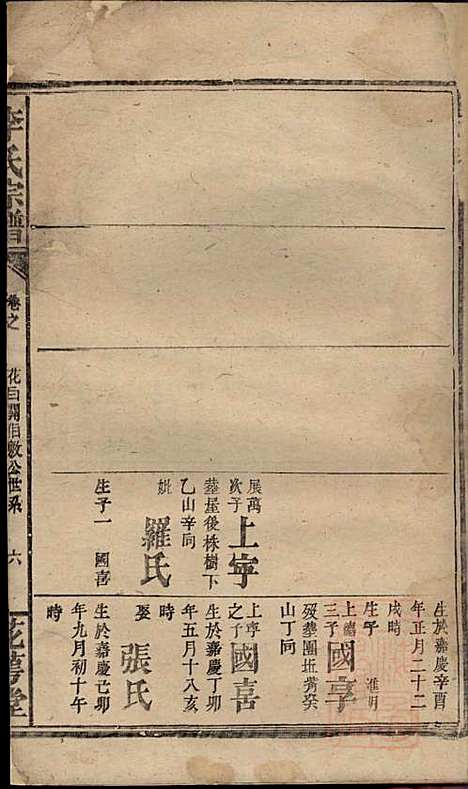 李氏宗譜
卷之
花白關伯敏公世系
六
花萼堂
展萬
次子
上寧
葬屋後株樹下
乙山辛向
妣
羅氏
生子一 國喜
生於嘉慶辛酉
年正月二十二
戌時
生子 進明
上繡
三子
國享
歿葬團坵嘴癸
山丁向
上寧
之子
國喜
生於嘉慶丁卯
年五月十八亥
時
娶
張氏
生於嘉慶己卯
年九月初十午
時